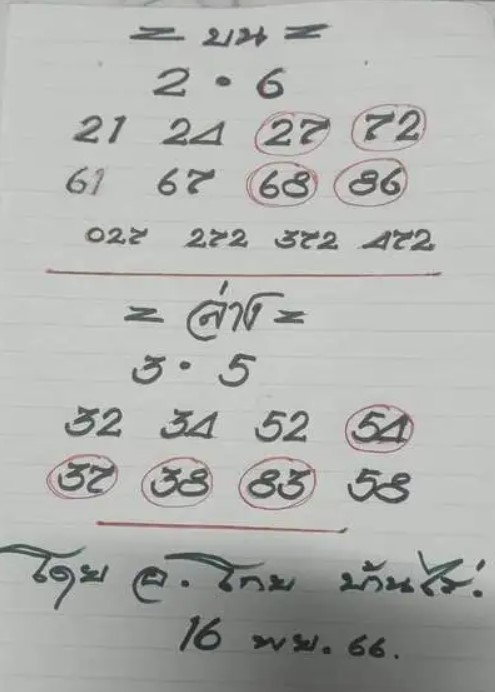 = บน =
2 • 6
21 24 27 72
61 67 68 86
027 272 372 472
= ล่าง =
3 • 5
32 34 52 54
37 38 83 58
โดย อ. โทย บ้านไร่.
16 พย. 66.